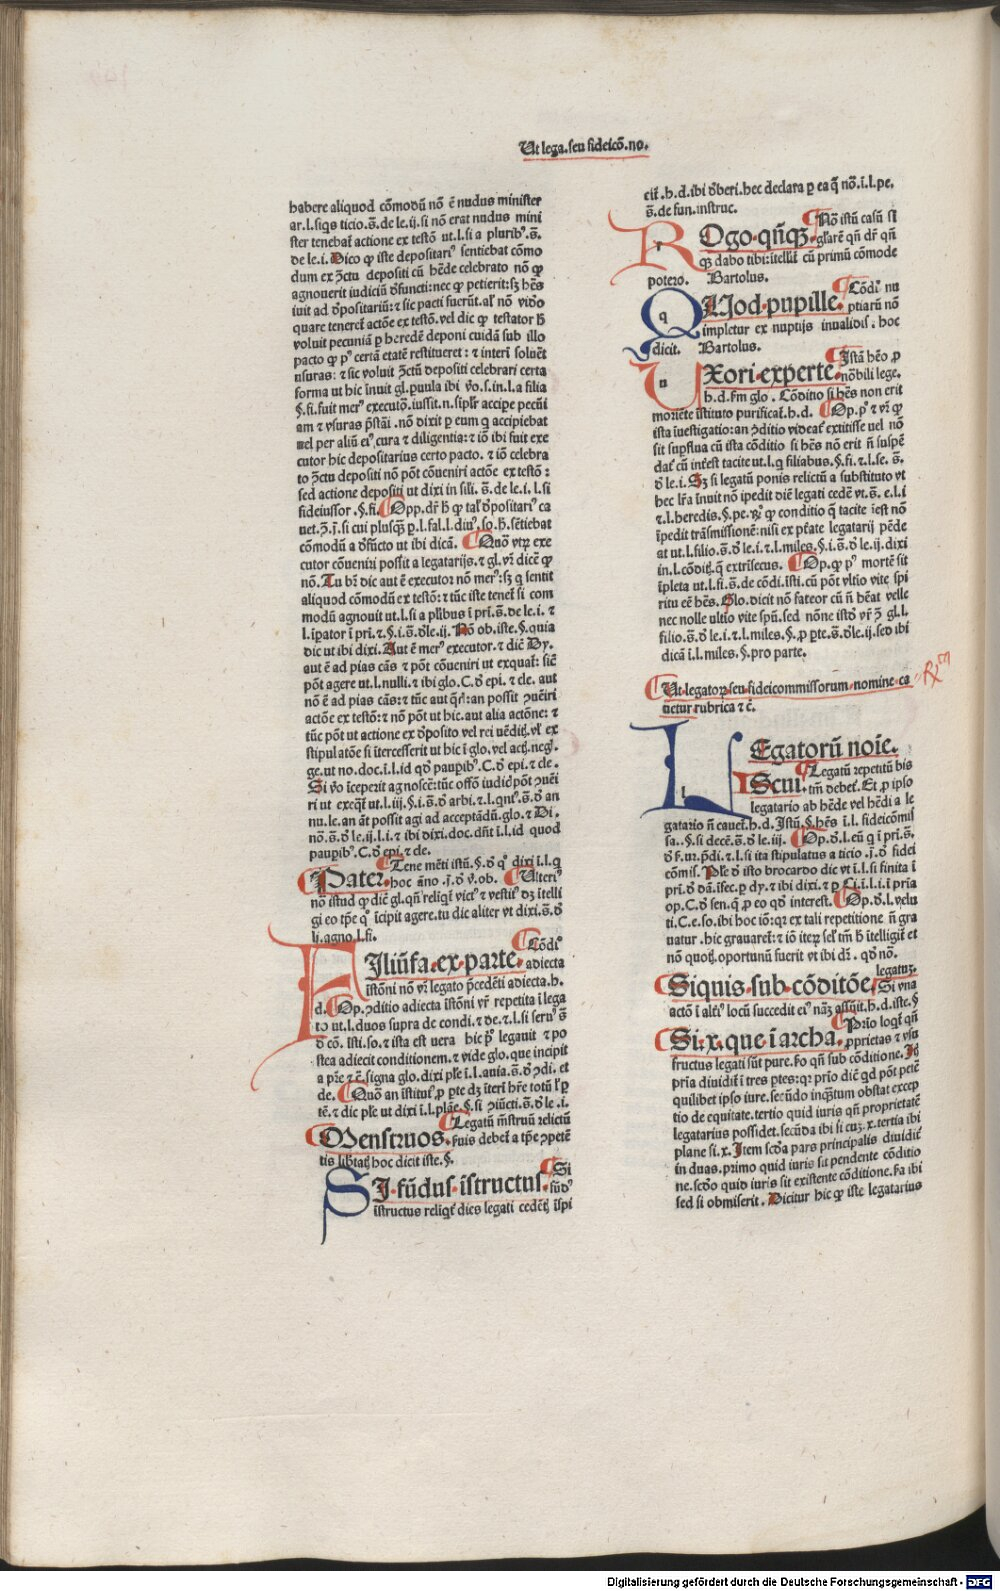 Ut lega.seu fideicō.no.
habere aliquod cōmodū nō ē nudus minister
ar.l.siqs ticio.s̄.de le.ij.si nō erat nudus mini
ster tenebat̄ actione ex testō ut.l.si a pluribꝰ.s̄.
de le.i. Dico ꝙ iste depositariꝰ sentiebat cōmo
dum ex ꝯctu depositi cū hēde celebrato nō ꝙ
agnouerit iudiciū d̄functi: nec ꝙ petierit: sꝫ hēs
iuit ad d̄positariū: ⁊ sic pacti fuerūt. al̓ nō vid̓o
quare teneret̄ actōe ex testō. vel dic ꝙ testator h̄
voluit pecuniā ꝑ heredē deponi cuidā sub illo
pacto ꝙ pꝰ certā etatē restitueret: ⁊ interī solueīt
usuras: ⁊ sic voluit ꝯctū depositi celebrari certa
forma ut hic īnuit gl. puula ibi v̓o.s.in.l.a filia
§.fi.fuit merꝰ executō. iussit.n.siplr̄ accipe pecūi
am ⁊ vsuras p̄stāi. nō dixit ꝑ eum q accipiebat
uel per aliū eiꝰ cura ⁊ diligentia: ⁊ iō ibi fuit exe
cutor hic depositarius certo pacto. ⁊ iō celebra
to ꝯctu depositi nō pōt cōueniri actōe ex testō:
sed actione depositi ut dixi in sili. s̄.de le.i.l.si
fideiussor.§.fi. Opp. dr̄ h̄ ꝙ tal̓ d̄positariꝰ ca
uet.ꝫ.ī.si cui plusqꝫ ꝑ.l.fal.l.diuꝰ.so.h̄.sētiebat
cōmodū a d̄fūcto ut ibi dicā. Quō vtꝝ exe
cutor cōueniri possit a legatarijs. ⁊ gl. vr̄ dicē ꝙ
nō. Tu br̄ dic aut ē executor nō merꝰ: sꝫ q sentit
aliquod cōmodū ex testō: ⁊ tūc iste tenet̄ si com
modū agnouit ut.l.si a plībus ī prī.s̄.de le.i. ⁊
l.īpator ī prī.⁊.§.i.s̄.d̄le.ij. Nō ob.iste.§.quia
dic ut ibi dixi. Aut ē merꝰ executor. ⁊ dic̄ Dy.
aut ē ad pias cās ⁊ pōt cōueniri ut exquat̄: sic̄
pōt agere ut.l.nulli.⁊ ibi glo.C.d̄ epi.⁊ cle. aut
nō ē ad pias cās: ⁊ tūc aut q̄rid̄: an possit ꝯueīri
actōe ex testō: ⁊ nō pōt ut hic. aut alia actōne: ⁊
tūc pōt ut actione ex d̄posito vel rei uēdit̄. vl̓ ex
stipulatōe si ītercesserit ut hic ī glo. vel act̄.neg̓l.
ge.ut no.doc.ī.l.id qd̄ paupībꝰ.C.d̄ epi.⁊ cle.
Si v̓o īceperit agnoscē: tūc offō iudicꝭ pōt ꝯuēi
ri ut exeqt̄ ut.l.iij.§.i.s̄.d̄ arbi.⁊.l.qntꝰ.s̄.d̄ an
nu.le. an āt possit agi ad acceptādū. glo.⁊ Di.
nō.s̄.d̄ le.ij.l.i.⁊ ibi dixi.doc.dn̄t ī.l.id quod
paupibꝰ.C.d̄ epi.⁊ cle.
Pater. Tene mēti istū.§.d̄ qꝰ dixi ī.l.q
hoc āno.ī.d̄ v̓.ob. Ulteriꝰ
nō istud ꝙ dic̄ gl. qn̄ reliqt̄ victꝰ ⁊ vestitꝰ dꝫ ītelli
gi eo tp̄e qꝰ īcipit agere. tu dic aliter vt dixi.s̄.d̄
li.agno.l.fi.
Filiūfa.ex.parte. Cōdiꝰ
adiecta
īstōni nō vr̄ legato p̄cedēti adiecta.h.
d. Op. ꝯditio adiecta īstōni vr̄ repetita ī lega
to ut.l.duos supra de condi.⁊ de.⁊.l.si seruꝰ s̄
d̄ cō. īsti.so. ⁊ ista est uera hic pꝰ legauit ⁊ po
stea adiecit conditionem.⁊ vide glo.que incipit
a pr̄e ⁊ ē signa glo. dixi ple ī.l.auia.s̄.d̄ ꝯdi. et
de. Quō an īstitutꝰ ꝓ pte dꝫ īterī hr̄e totū l̓ ꝑ
tē. ⁊ dic ple ut dixi ī.l.plāe.§.si ꝯiūcti.s̄.d̄le.i.
Menstruos. Legatū mēstruū relictū
suis debet̄ a tp̄e ꝯpetē
tis lib̄tat̄. hoc dicit iste.§.
Si.fūdus.īstructus. Si
fūdꝰ
īstructus reliqt̄ dies legati cedēt̄ īspi
cit̄.h.d.ibi d̄beri. hec declara ꝑ ea q̄ nō.ī.l.pe.
s̄.de fun.instruc.
Rogo.qn̄qꝫ. Nō istū casū si
gl̓arē qn̄ dr̄ qn̄
qꝫ dabo tibi: ītellīt̄ cū primū cōmode
potero. Bartolus.
Quod.pupille. Cōdiꝰ nu
ptiarū nō
impletur ex nuptijs inualidis. hoc
dicit. Bartolus.
Uxori.experte. Istā hēo ꝓ
nōbili lege.
h.d. fm glo. Cōditio si hēs non erit
moriēte īstituto purificat̄.h.d. Op. pꝰ ⁊ vr̄ ꝙ
ista īuestigatio: an ꝯditio videat̄ extitisse uel nō
sit supflua cū ista cōditio si hēs nō erit n̄ suspē
dat̄ cū inēst tacite ut.l.q filiabus.§.fi.⁊.l.se. s̄.
d̄ le.i. Sꝫ si legatū ponis relictū a substituto vt
hec lr̄a īnuit nō īpedit diē legati cedē vt.s̄. e.l.i
⁊.l.heredis.§.pe.rꝰ. ꝙ conditio q̄ tacite īest nō
īpedit trāsmissionē: nisi ex pt̄ate legatarij pēde
at ut.l.filio.s̄.d̄ le.i.⁊.l.miles.§.i.s̄.d̄ le.ij. dixi
in.l.cōdit̄. q̄ extrīsecus. Op. ꝙ pꝰ mortē sit
īpleta ut.l.fi.s̄.de cōdi.īsti. cū pōt vltio vite spi
ritu eē hēs. Glo.dicit nō fateor cū n̄ hēat velle
nec nolle ultio vite spū. sed nōne istd̄ vr̄ ꝫ gl.l.
filio.s̄.d̄ le.i.⁊.l.miles.§.ꝓ pte.s̄.d̄le.ij. sed ibi
dicā ī.l.miles.§.pro parte.
Ut.legatoꝝ.seu.fideicommissorum.nomine.ca
uetur rubrica ⁊ c̄.
Legatorū noīe.
Scui. Legatū repetitū bis
tm̄ debet̄. Et ꝓ ipso
legatario ab hēde vel hēdi a le
gatario n̄ cauet̄.h.d. Istū.§.hēs ī.l.fideicōmis̄
sa..§.si decē.s̄.d̄ le.iij. Op.d̄.l.cū q ī prī.s̄.
d̄ f.ur.p̄di.⁊.l.si ita stipulatus a ticio.ī.d̄ fidei
cōmis̄. Ple d̄ isto brocardo dic vt ī.l.si finita ī
prī.d̄ dā.īfec. ꝑ dy.⁊ ibi dixi.⁊ ꝑ Ci.ī.l.i.ī prīa
op.C.d̄ sen.q̄ ꝓ eo qd̄ interest. Op.d̄.l.velu
ti.C.e.so. ibi hoc iō: qr ex tali repetitione n̄ gra
uatur. hic grauaret̄: ⁊ iō iteꝝ sel̓ tm̄ h̄ ītelligit̄ et
nō quot̄. oportunū fuerit vt ibi dr̄. qd̄ nō.
Siquis.sub.cōditōe. legatuꝫ.
Si vna
actō ī alt̓iꝰ locū succedit eiꝰ nāꝫ assūit.h.d.iste.§
Si.x.que īarcha. Prio loqt̄ qn̄
proprietas ⁊ vsu
fructus legati sūt pure. ẜo qn̄ sub cōditione. Id
prīa diuidit̄ ī tres ptes: qꝛ prīo dic̄ qd̄ pōt petē
quilibet ipso iure. secūdo inqꝫtum obstat excep
tio de equitate. tertio quid iuris qn̄ proprietatē
legatarius possidet. secūda ibi si cuꝫ.x. tertia ibi
plane si.x. Item scd̄a pars principalis diuidit̄
in duas. primo quid iuris sit pendente cōditio
ne. scd̄o quid iuris sit existente cōditione. ẜa ibi
sed si obmiserit. Dicitur hic ꝙ iste legatarius
Digitalisierung gefördert durch die Deutsche Forschungsgemeinschaft - DFG